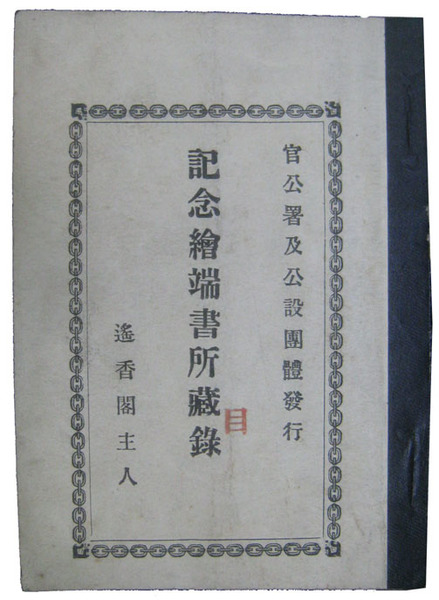 官公署及公設團體發行
記念繪端書所藏錄
目
遙香閣主人